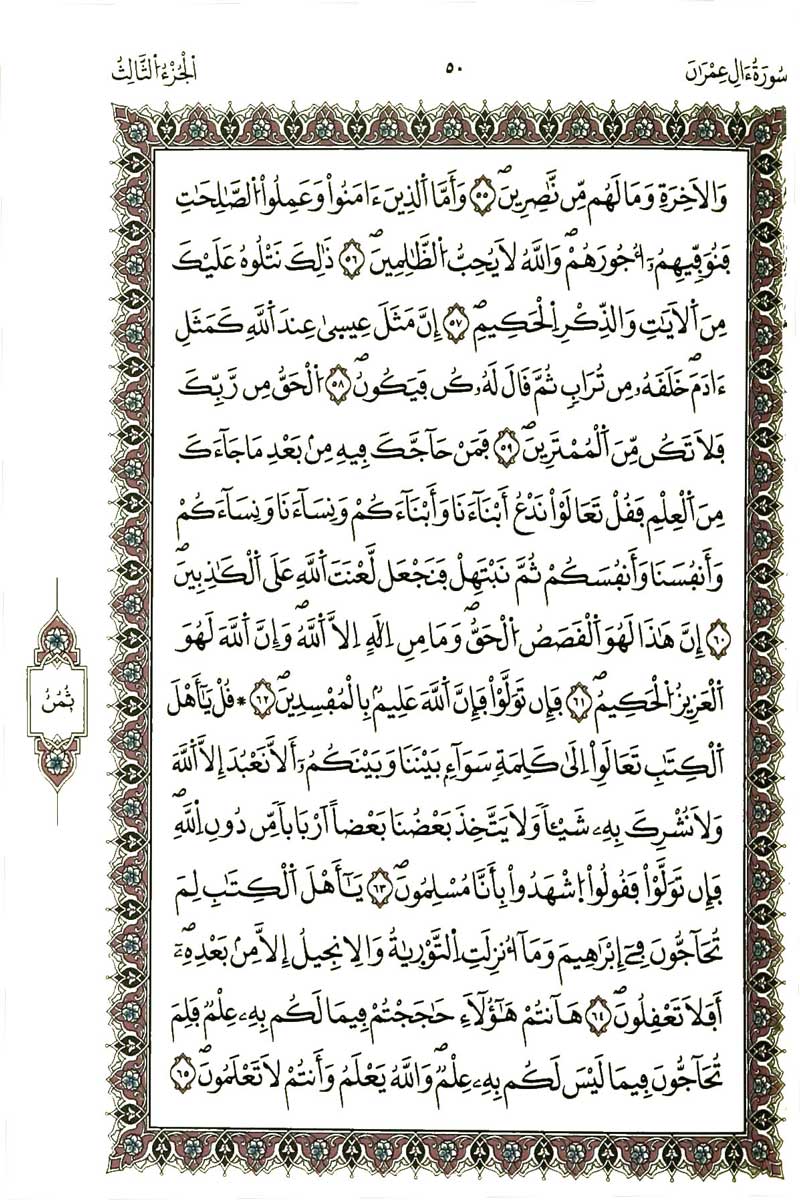 سُورَةُ ءَالِ عِمْرَانَ
٥٠
اَلْجُزْءُ اُلثَّالِثُ
وَالَاخِرَةِ وَمَا لَهُم مِّن نَّٰصِرِينَۖ ٥٥ وَأَمَّا اَلذِينَ ءَامَنُواْ وَعَمِلُواْ اُلصَّٰلِحَٰتِ
فَنُوَفِّيهِمُۥٓ أُجُورَهُمْۖ وَاللَّهُ لَا يُحِبُّ اُلظَّٰلِمِينَۖ ٥٦ ذَٰلِكَ نَتْلُوهُ عَلَيْكَ
مِنَ اَلَايَٰتِ وَالذِّكْرِ اِلْحَكِيمِۖ ٥٧ إِنَّ مَثَلَ عِيسۭيٰ عِندَ اَللَّهِ كَمَثَلِ
ءَادَمَۖ خَلَقَهُۥ مِن تُرَابٖ ثُمَّ قَالَ لَهُۥ كُن فَيَكُونُۖ ٥٨ اُلْحَقُّ مِن رَّبِّكَ
فَلَا تَكُن مِّنَ اَلْمُمْتَرِينَۖ ٥٩ فَمَنْ حَآجَّكَ فِيهِ مِنۢ بَعْدِ مَا جَآءَكَ
مِنَ اَلْعِلْمِ فَقُلْ تَعَالَوْاْ نَدْعُ أَبْنَآءَنَا وَأَبْنَآءَكُمْ وَنِسَآءَنَا وَنِسَآءَكُمْ
وَأَنفُسَنَا وَأَنفُسَكُمْ ثُمَّ نَبْتَهِلْ فَنَجْعَل لَّعْنَتَ اَللَّهِ عَلَى اَلْكَٰذِبِينَۖ
٦٠ إِنَّ هَٰذَا لَهُوَ اَلْقَصَصُ اُلْحَقُّۖ وَمَا مِنِ اِلَٰهٍ اِلَّا اَللَّهُۖ وَإِنَّ اَللَّهَ لَهُوَ
اَلْعَزِيزُ اُلْحَكِيمُۖ ٦١ فَإِن تَوَلَّوْاْ فَإِنَّ اَللَّهَ عَلِيمُۢ بِالْمُفْسِدِينَۖ ٦٢ * قُلْ يَٰٓأَهْلَ
اَلْكِتَٰبِ تَعَالَوِاْ اِلَىٰ كَلِمَةٖ سَوَآءِۢ بَيْنَنَا وَبَيْنَكُمُۥٓ أَلَّا نَعْبُدَ إِلَّا اَللَّهَ
وَلَا نُشْرِكَ بِهِۦ شَيْـٔاٗ وَلَا يَتَّخِذَ بَعْضُنَا بَعْضاً اَرْبَاباٗ مِّن دُونِ اِللَّهِۖ
فَإِن تَوَلَّوْاْ فَقُولُواْ اُشْهَدُواْ بِأَنَّا مُسْلِمُونَۖ ٦٣ يَٰٓأَهْلَ اَلْكِتَٰبِ لِمَ
تُحَآجُّونَ فِےٓ إِبْرَٰهِيمَ وَمَآ أُنزِلَتِ اِلتَّوْرَيٰةُ وَالِانجِيلُ إِلَّا مِنۢ بَعْدِهِۦٓۖ
أَفَلَا تَعْقِلُونَۖ ٦٤ هَآنتُمْ هَٰٓؤُلَآءِ حَٰجَجْتُمْ فِيمَا لَكُم بِهِۦ عِلْمٞ فَلِمَ
تُحَآجُّونَ فِيمَا لَيْسَ لَكُم بِهِۦ عِلْمٞۖ وَاللَّهُ يَعْلَمُ وَأَنتُمْ لَا تَعْلَمُونَۖ ٦٥
ثُمُنُ